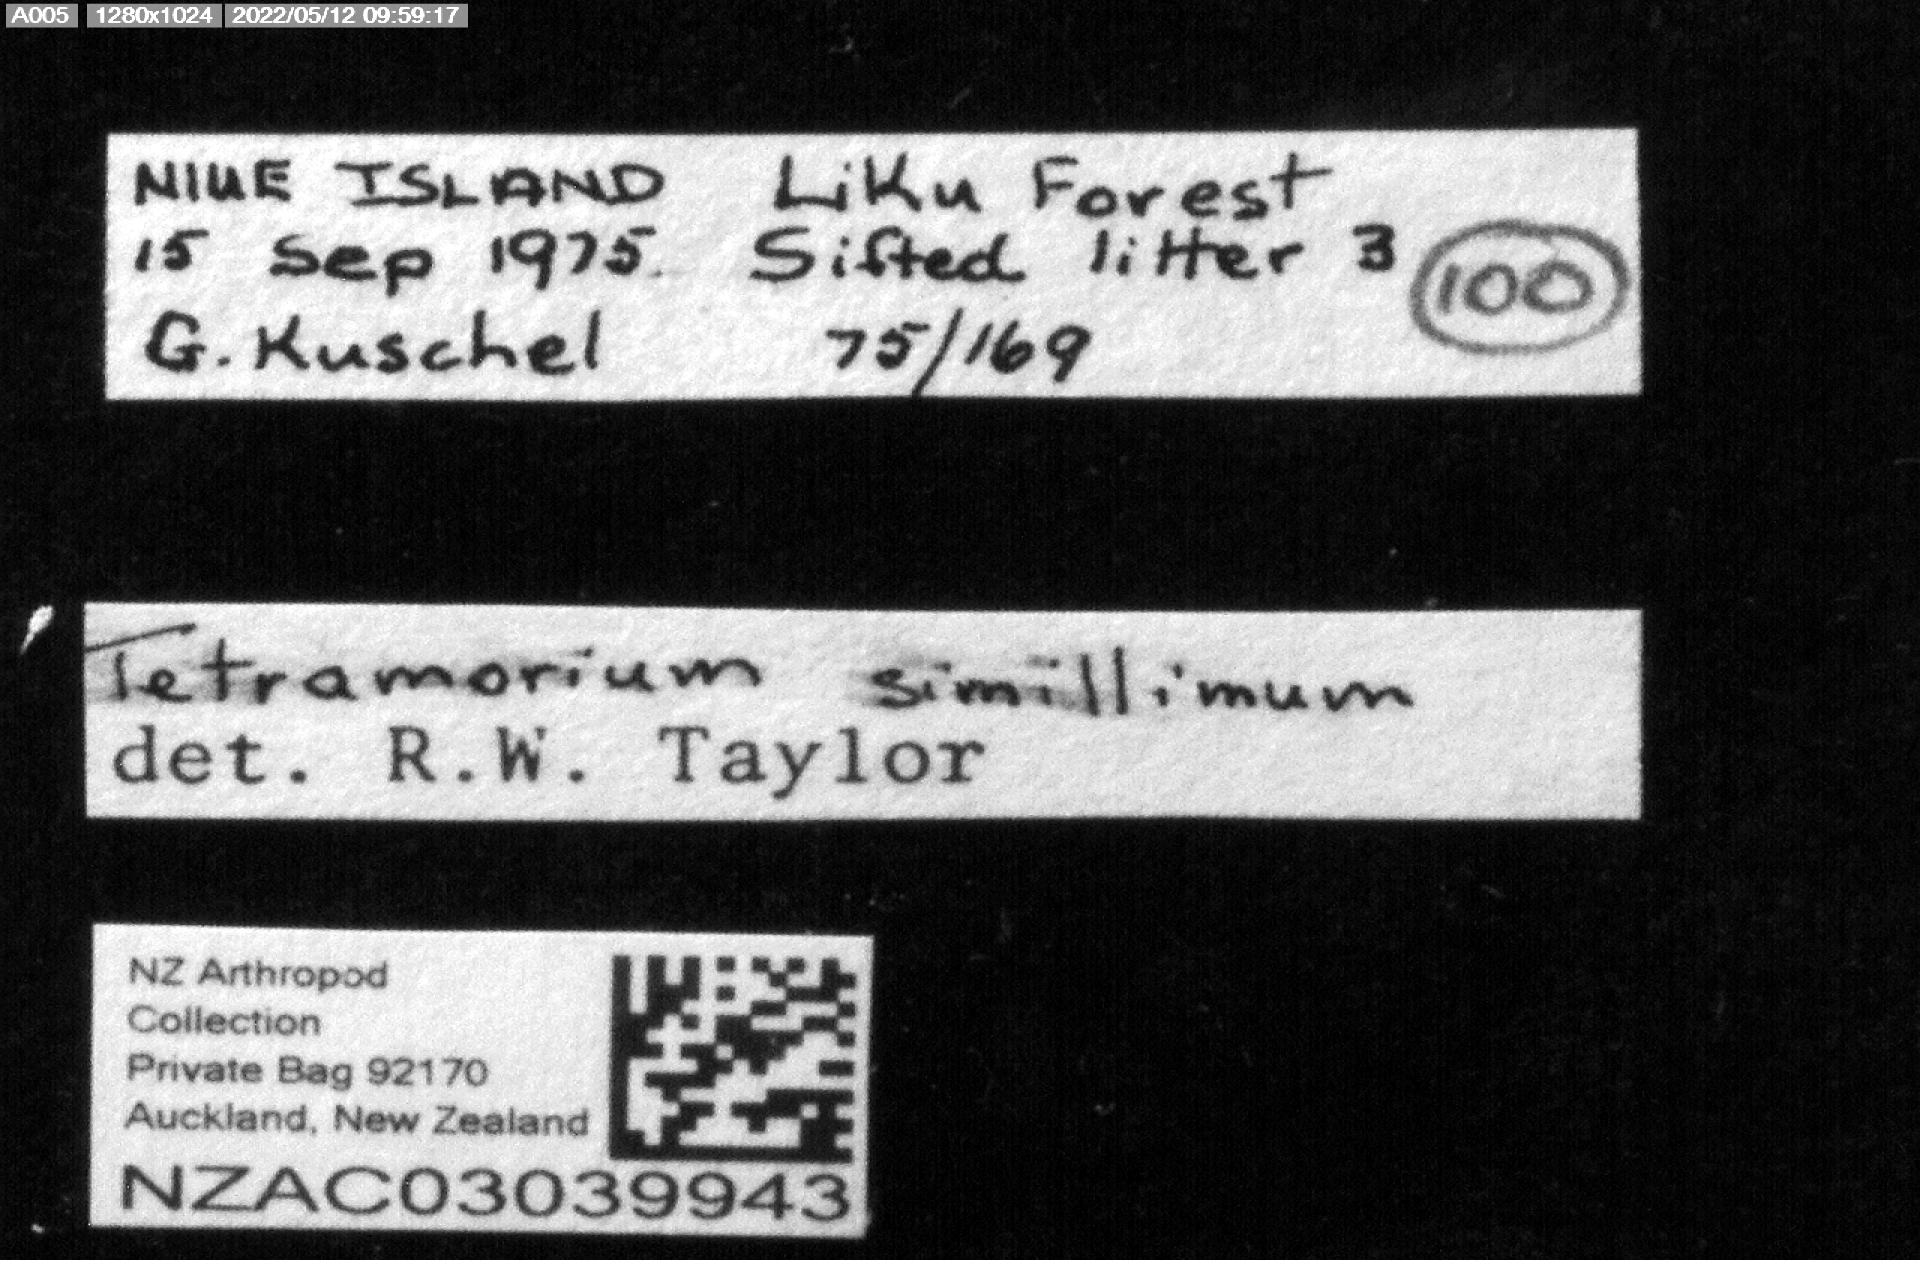 A005 1280x1024 2022/05/12 09:59:17
NIUE ISLAND Liku Forest
15 Sep 1975. Sifted litter 3
100
G. Kuschel 75/169
Tetramorium simillimum
det. R.W. Taylor
NZ Arthropod
Collection
Private Bag 92170
Auckland, New Zealand
NZAC03039943